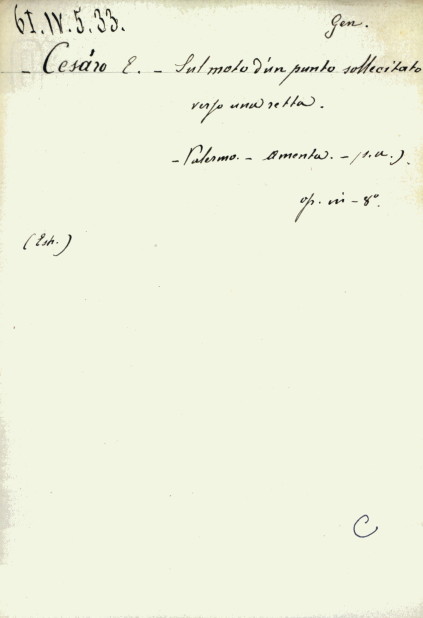 61.IV.5.33. Gen.
- Cesáro E. - Sul moto d'un punto sollecitato
verso una retta.
- Palermo. - Amenta. - (s.a.)
op. in - 8°.
(Estr.)
C